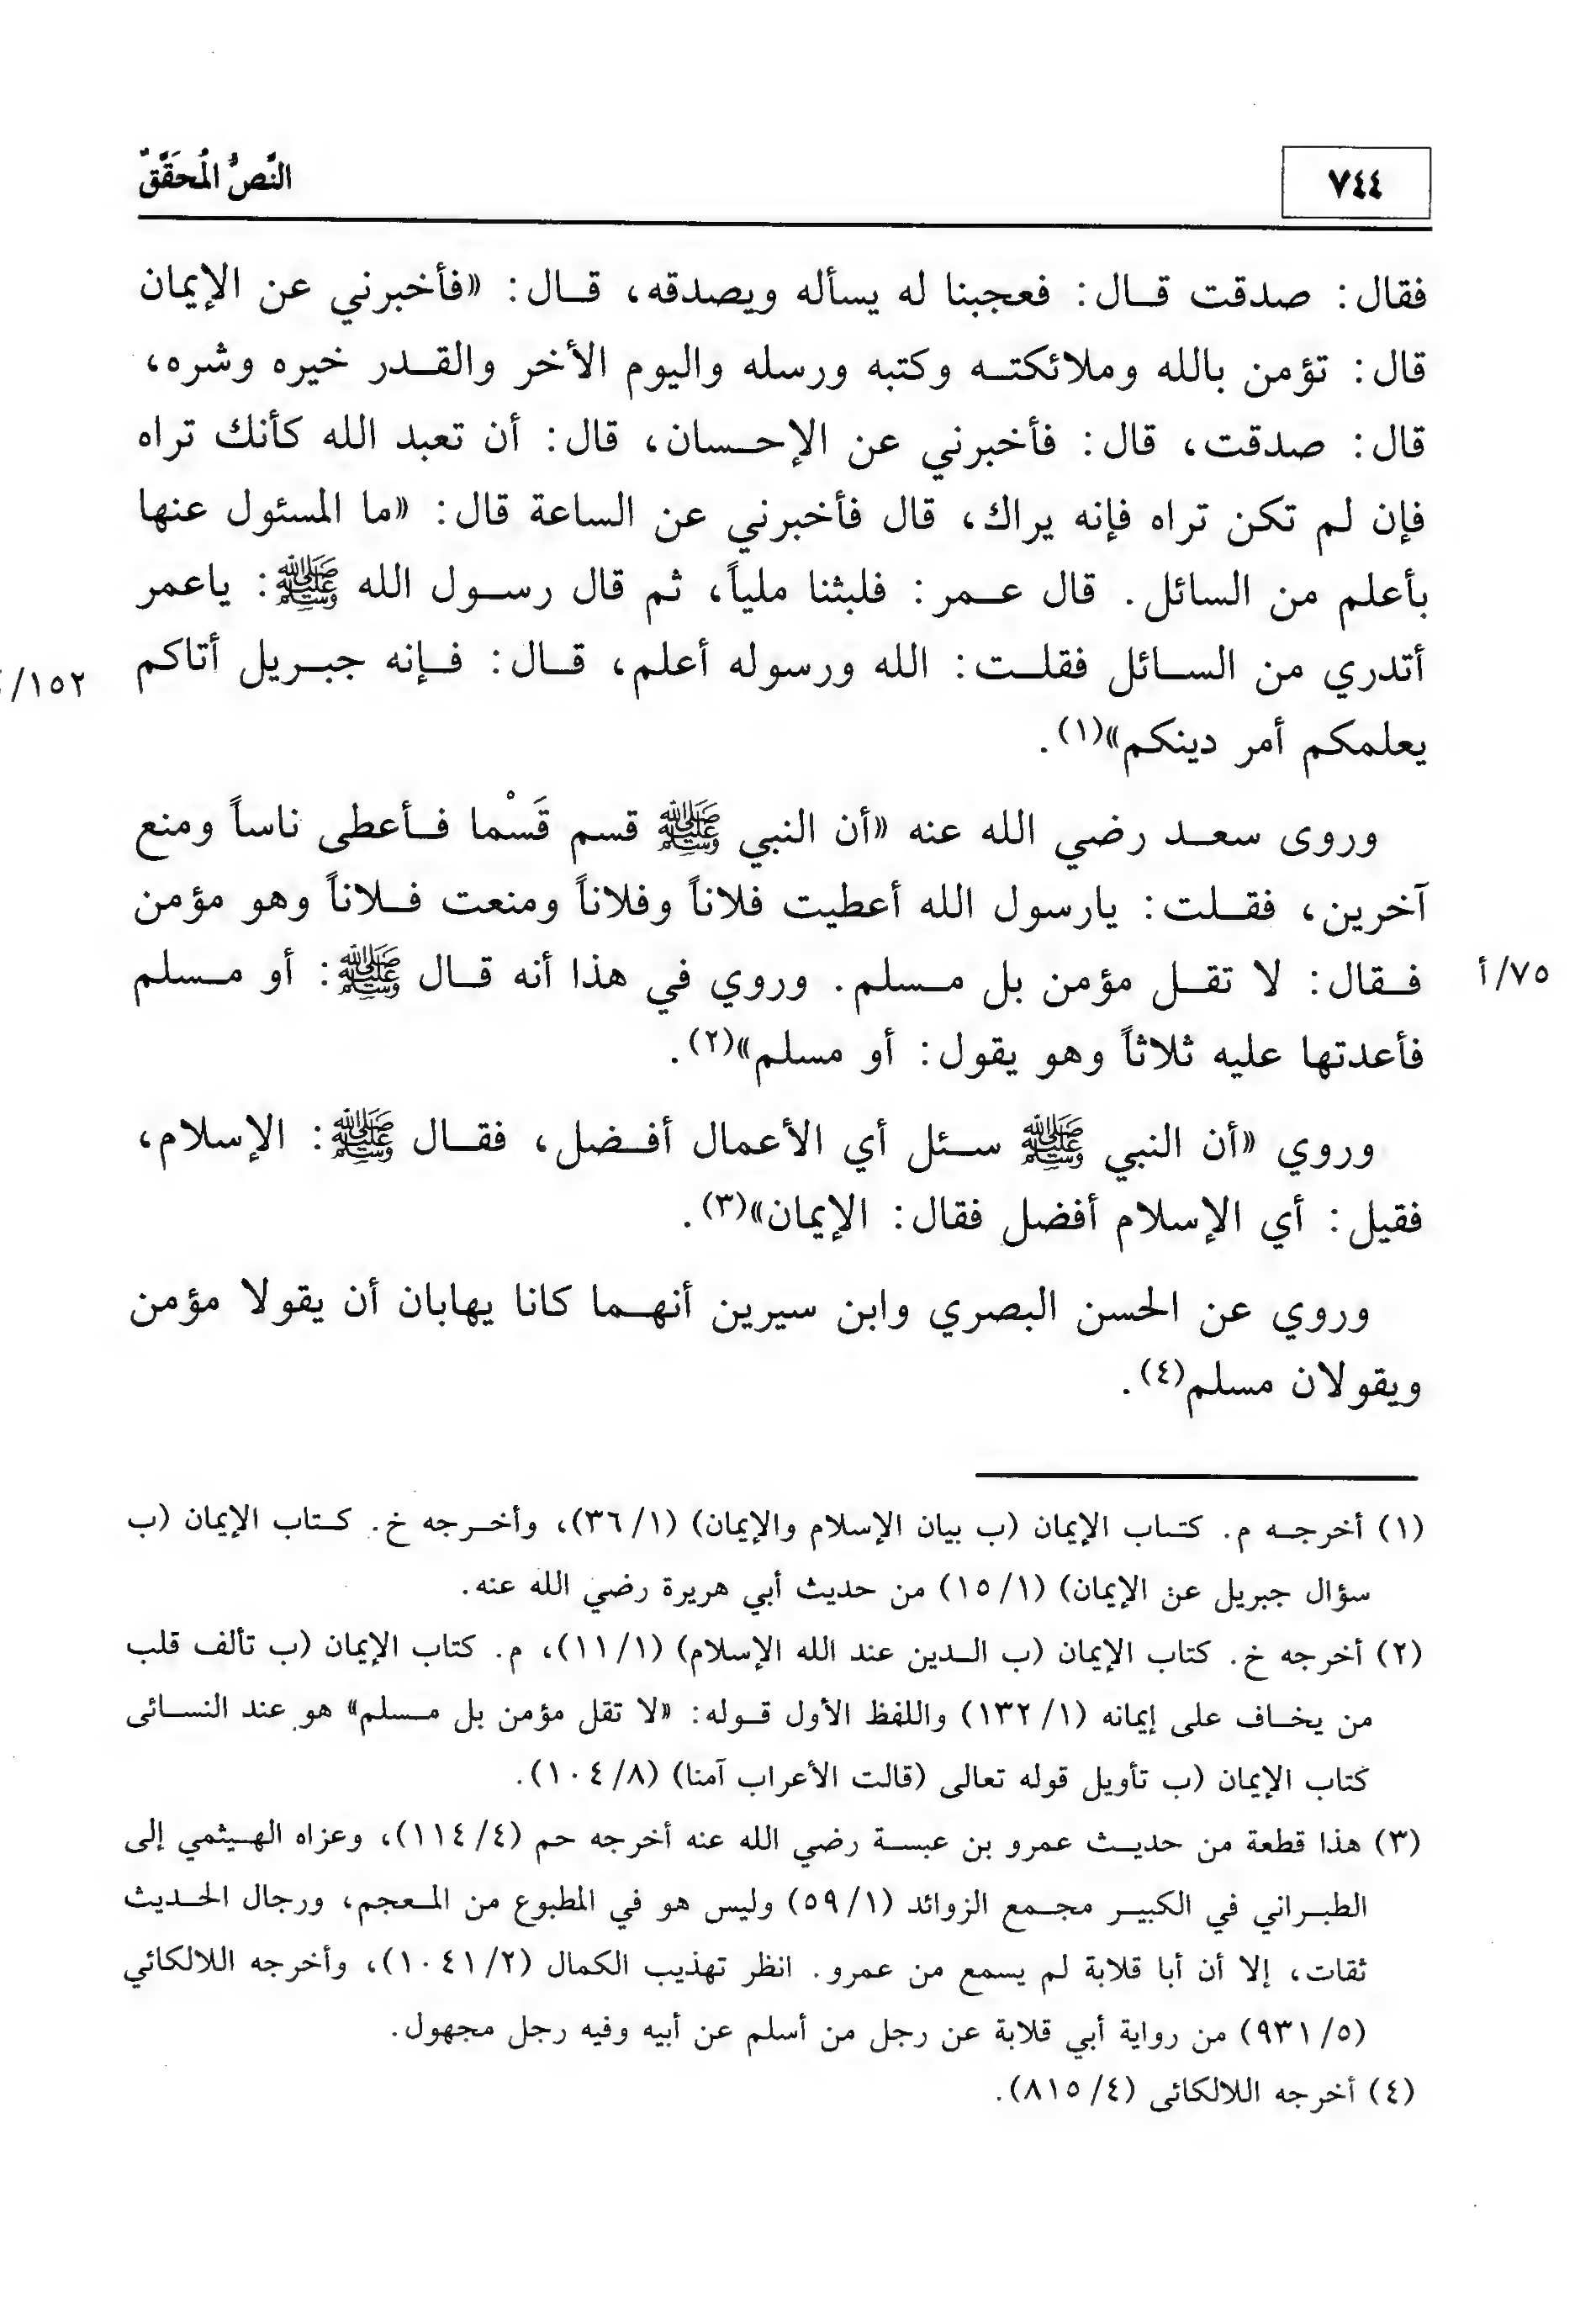 ٧٤٤
النَّصُّ المُحَقَّقٌ
فقال: صدقت قال: فعجبنا له يسأله ويصدقه، قال: «فأخبرني عن الإيمان
قال: تؤمن بالله وملائكته وكتبه ورسله واليوم الأخر والقدر خيره وشره،
قال: صدقت، قال: فأخبرني عن الإحسان، قال: أن تعبد الله كأنك تراه
فإن لم تكن تراه فإنه يراك، قال فأخبرني عن الساعة قال: «ما المسئول عنها
بأعلم من السائل. قال عمر: فلبثنا ملياً، ثم قال رسول الله ﷺ: ياعمر
أتدري من السائل فقلت: الله ورسوله أعلم، قال: فإنه جبريل أتاكم
١٥٢/
يعلمكم أمر دينكم»(١).
وروى سعد رضي الله عنه «أن النبي ﷺ قسم قَسْما فأعطى ناساً ومنع
آخرين، فقلت: يارسول الله أعطيت فلاناً وفلاناً ومنعت فلاناً وهو مؤمن
٧٥/أ
فقال: لا تقل مؤمن بل مسلم. وروي في هذا أنه قال ﷺ: أو مسلم
فأعدتها عليه ثلاثاً وهو يقول: أو مسلم»(٢).
وروي «أن النبي ﷺ سئل أي الأعمال أفضل، فقال ﷺ: الإسلام،
فقيل: أي الإسلام أفضل فقال: الإيمان»(٣).
وروي عن الحسن البصري وابن سيرين أنهما كانا يهابان أن يقولا مؤمن
ويقولان مسلم(٤).
(١) أخرجه م. كتاب الإيمان (ب بيان الإسلام والإيمان) (٣٦/١)، وأخرجه خ. كتاب الإيمان (ب
سؤال جبريل عن الإيمان) (١٥/١) من حديث أبي هريرة رضي الله عنه.
(٢) أخرجه خ. كتاب الإيمان (ب الدين عند الله الإسلام) (١١/١)، م. كتاب الإيمان (ب تألف قلب
من يخاف على إيمانه (١٣٢/١) واللفظ الأول قوله: «لا تقل مؤمن بل مسلم» هو عند النسائى
كتاب الإيمان (ب تأويل قوله تعالى (قالت الأعراب آمنا) (١٠٤/٨).
(٣) هذا قطعة من حديث عمرو بن عبسة رضي الله عنه أخرجه حم (١١٤/٤)، وعزاه الهيثمي إلى
الطبراني في الكبير مجمع الزوائد (٥٩/١) وليس هو في المطبوع من المعجم، ورجال الحديث
ثقات، إلا أن أبا قلابة لم يسمع من عمرو. انظر تهذيب الكمال (١٠٤١/٢)، وأخرجه اللالكائي
(٩٣١/٥) من رواية أبي قلابة عن رجل من أسلم عن أبيه وفيه رجل مجهول.
(٤) أخرجه اللالكائى (٨١٥/٤).